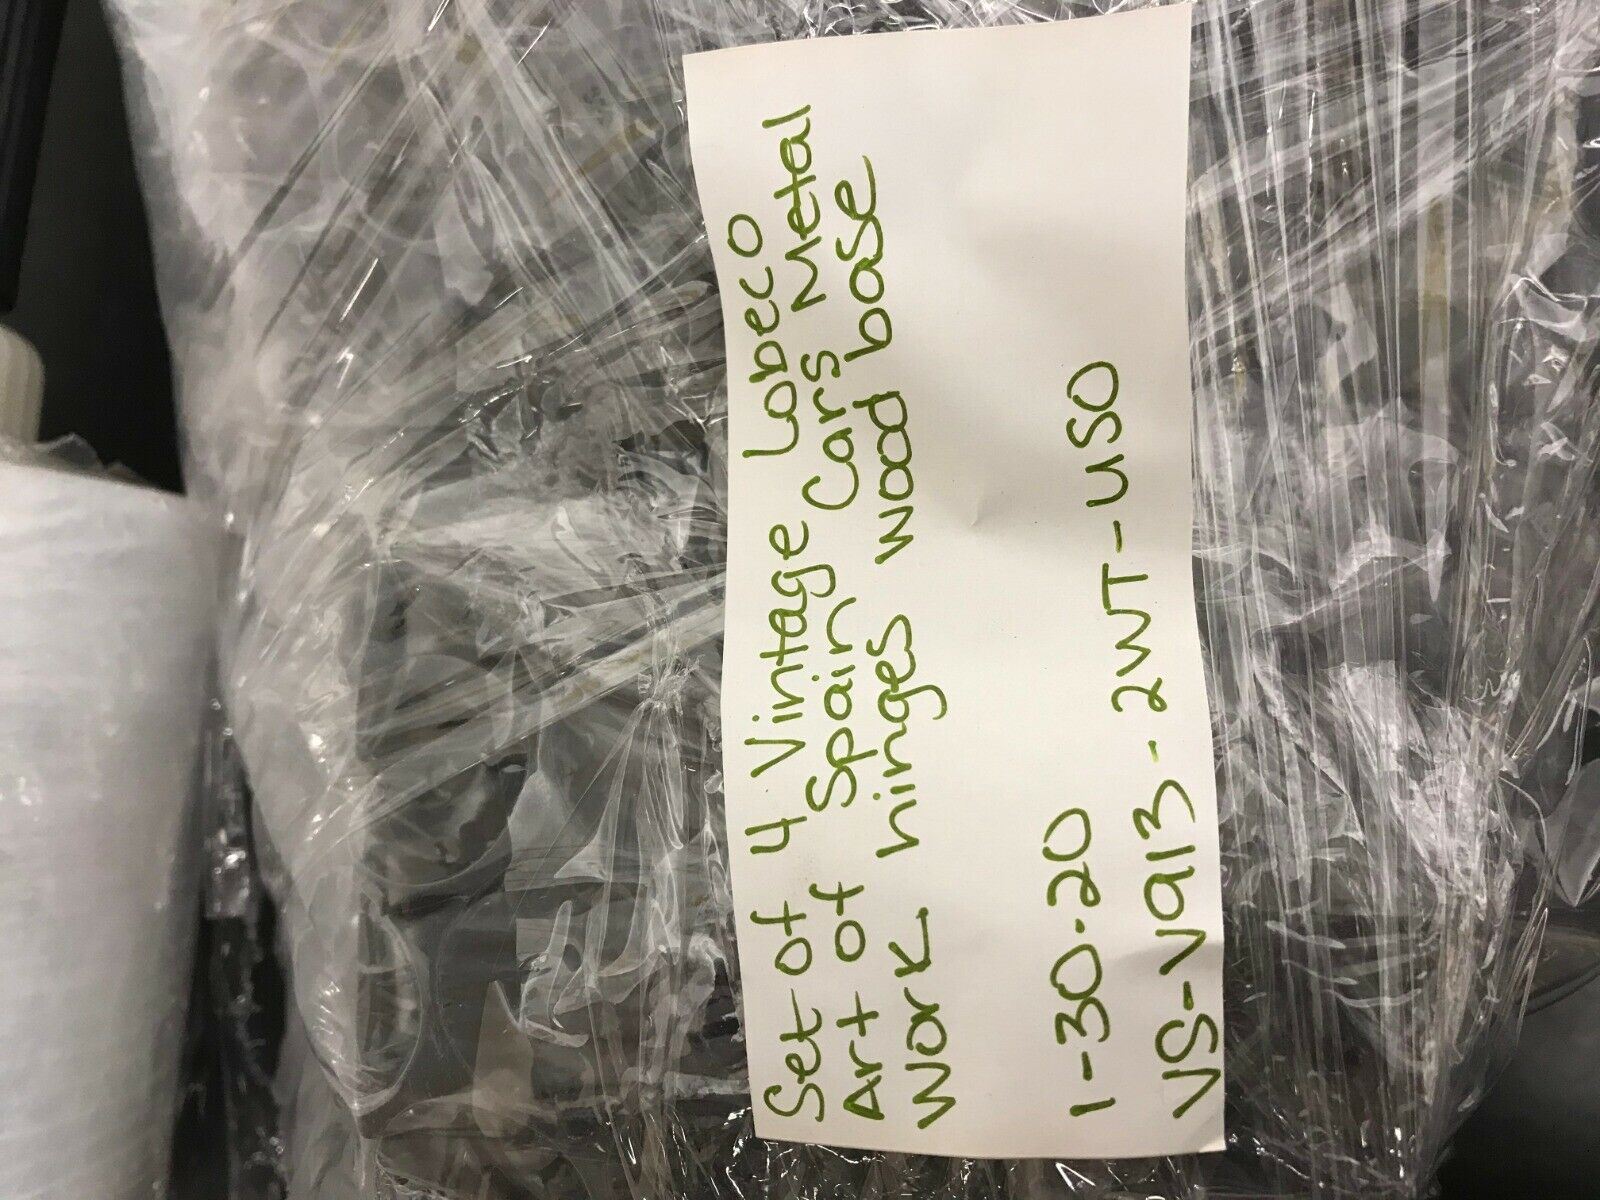 Set of 4 Vintage Lobeco
Art of Spain Cars Metal
Work hinges wood base
1-30-20
VS-V913-2WT-USO